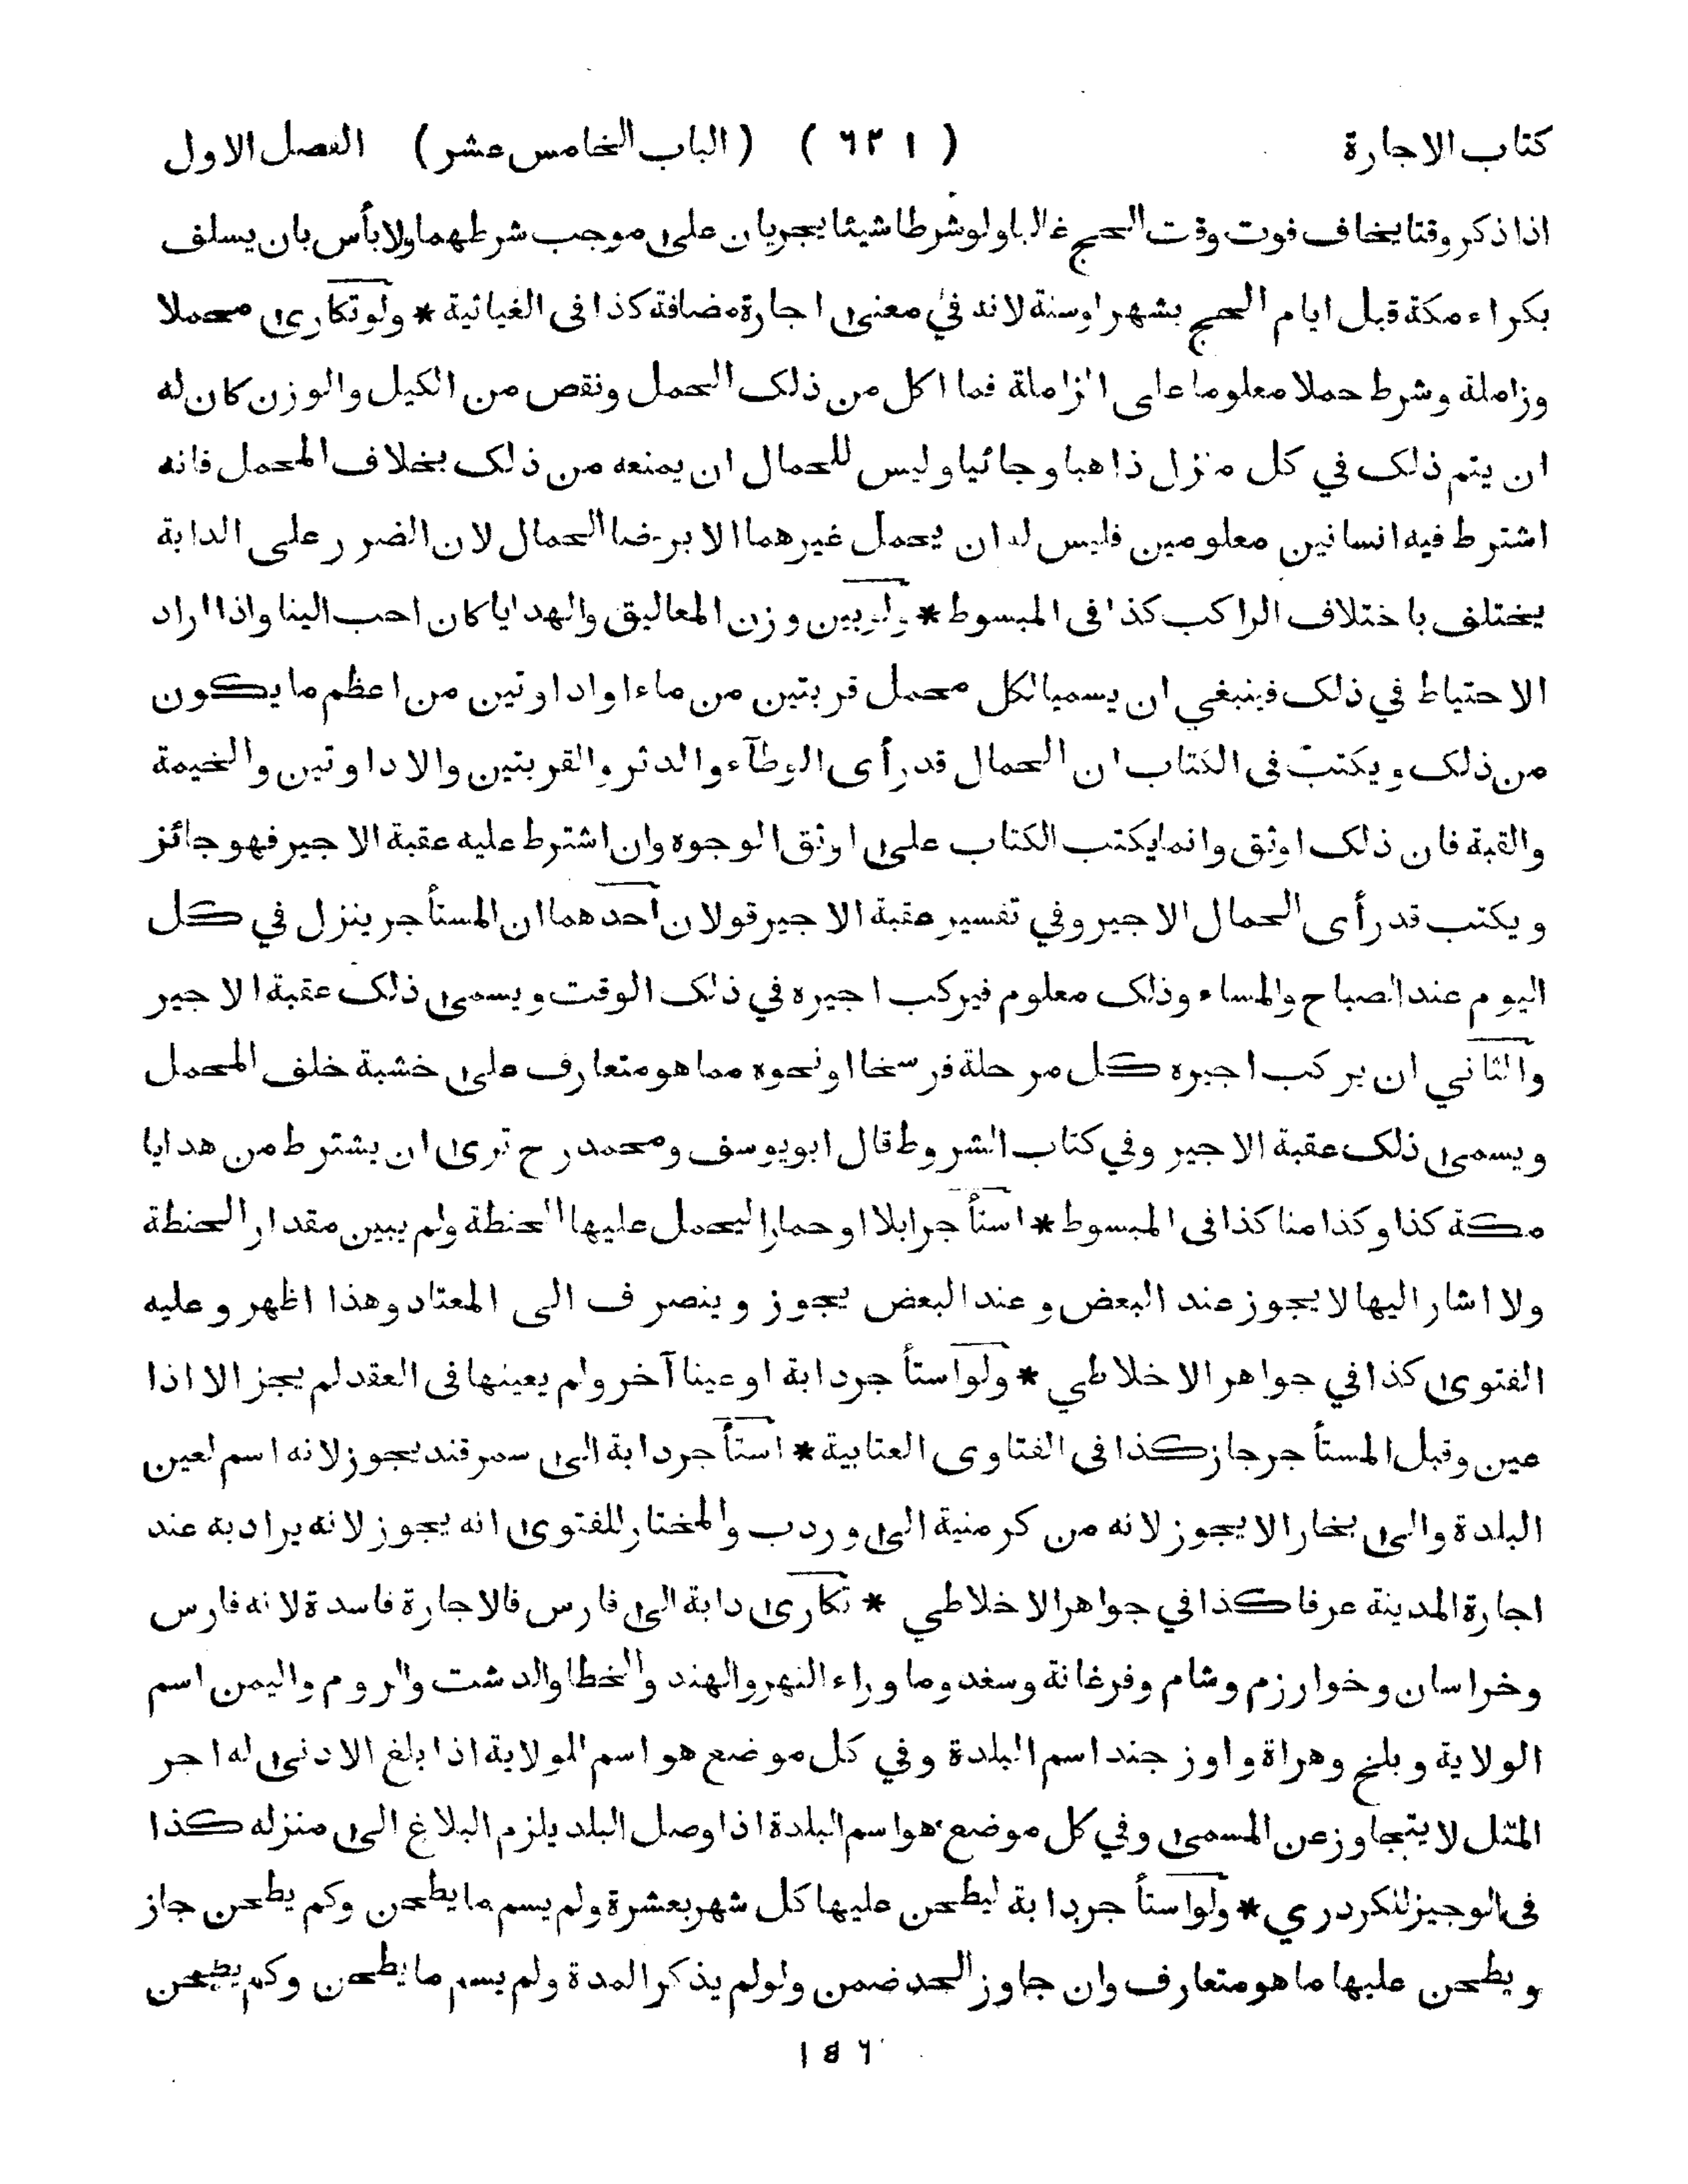 كتاب الاجارة ( ٦٢١ ) ( الباب الخامس عشر ) الفصل الاول
اذا ذكر وقتا يخاف فوت وقت الحج غالبا ولو شرطا شيئا يجريان على موجب شرطهما ولا بأس بان يسلف
بكراء مكة قبل ايام الحج بشهر او سنة لانه في معنى اجارة مضافة كذا فى الغياثية * ولو تكارى محملا
وزاملة وشرط حملا معلوما على الزاملة فما اكل من ذلك الحمل ونقص من الكيل والوزن كان له
ان يتم ذلك في كل منزل ذاهبا وجائيا وليس للحمال ان يمنعه من ذلك بخلاف المحمل فانه
اشترط فيه انسانين معلومين فليس له ان يحمل غيرهما الا برضا الحمال لان الضرر على الدابة
يختلف باختلاف الراكب كذا فى المبسوط * ولو بين وزن المعاليق والهدايا كان احب الينا واذا اراد
الاحتياط في ذلك فينبغي ان يسميا لكل محمل قربتين من ماء او اداوتين من اعظم ما يكون
من ذلك ويكتب فى الكتاب ان الحمال قد رأى الوطآء والدثر والقربتين والاداوتين والخيمة
والقبة فان ذلك اوثق وانما يكتب الكتاب على اوثق الوجوه وان اشترط عليه عقبة الاجير فهو جائز
ويكتب قد رأى الحمال الاجير وفي تفسير عقبة الاجير قولان احدهما ان المستأجر ينزل في كل
اليوم عند الصباح والمساء وذلك معلوم فيركب اجيره في ذلك الوقت ويسمى ذلك عقبة الاجير
والثاني ان يركب اجيره كل مرحلة فرسخا او نحوه مما هو متعارف على خشبة خلف المحمل
ويسمى ذلك عقبة الاجير وفي كتاب الشروط قال ابو يوسف ومحمد رح ترى ان يشترط من هدايا
مكة كذا وكذا منا كذا فى المبسوط * استأجر ابلا او حمارا ليحمل عليها الحنطة ولم يبين مقدار الحنطة
ولا اشار اليها لا يجوز عند البعض وعند البعض يجوز وينصرف الى المعتاد وهذا اظهر وعليه
الفتوى كذا في جواهر الاخلاطي * ولو استأجر دابة او عينا آخر ولم يعينها فى العقد لم يجز الا اذا
عين وقبل المستأجر جاز كذا فى الفتاوى العتابية * استأجر دابة الى سمرقند يجوز لانه اسم لعين
البلدة والى بخارا لا يجوز لانه من كرمنية الى وردب والمختار للفتوى انه يجوز لانه يراد به عند
اجارة المدينة عرفا كذا في جواهر الاخلاطي * تكارى دابة الى فارس فالاجارة فاسدة لانه فارس
وخراسان وخوارزم وشام وفرغانة وسغد وما وراء النهر والهند والخطا والدشت والروم واليمن اسم
الولاية وبلخ وهراة واوزجند اسم البلدة وفي كل موضع هو اسم الولاية اذا بلغ الادنى له اجر
المثل لا يتجاوز عن المسمى وفي كل موضع هو اسم البلدة اذا وصل البلد يلزم البلاغ الى منزله كذا
فى الوجيز للكردري * ولو استأجر دابة ليطحن عليها كل شهر بعشرة ولم يسم ما يطحن وكم يطحن جاز
ويطحن عليها ما هو متعارف وان جاوز الحد ضمن ولو لم يذكر المدة ولم يسم ما يطحن وكم يطحن